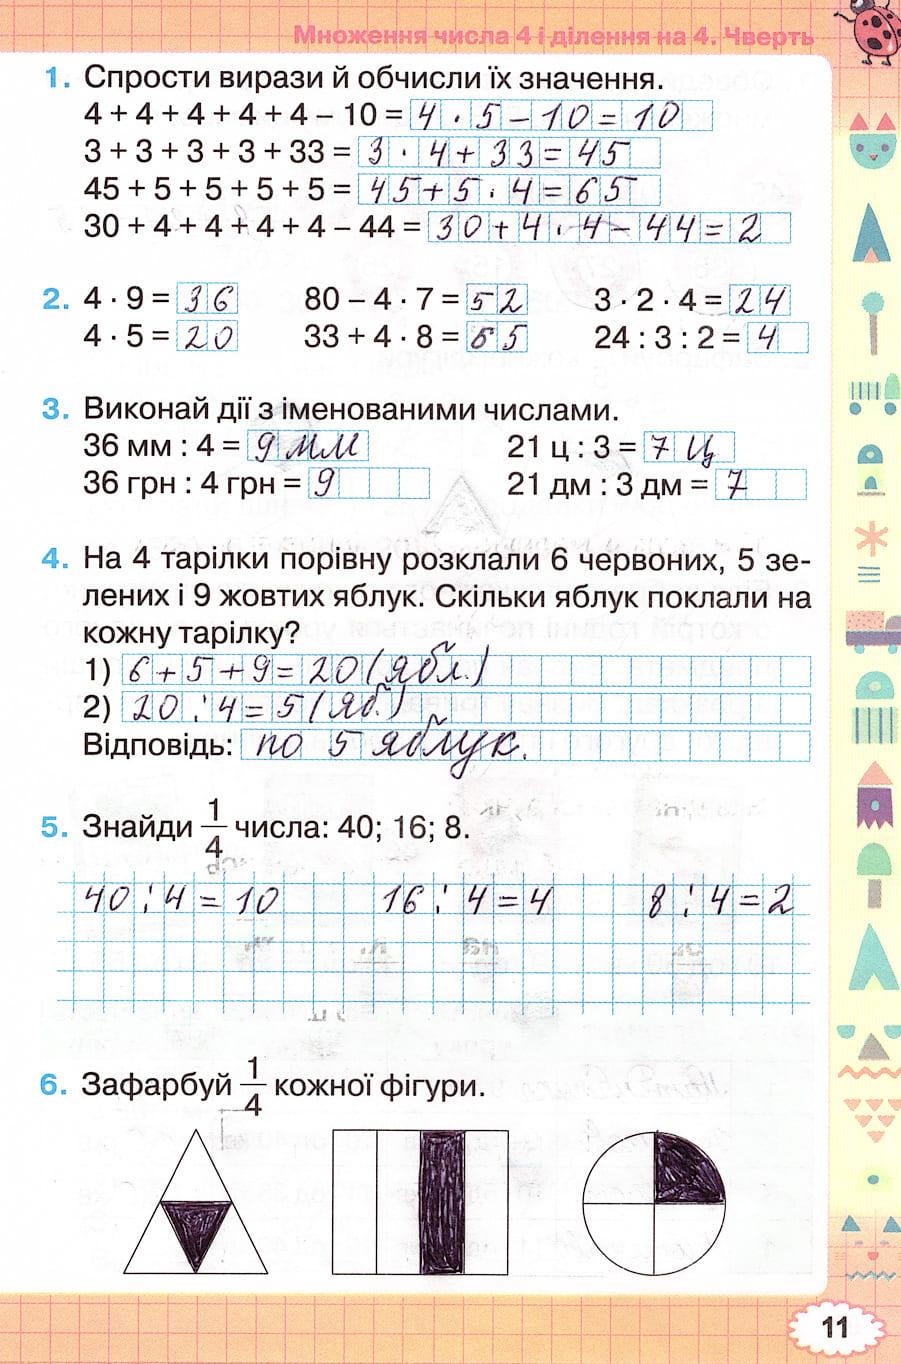 Множення числа 4 і ділення на 4. Чверть
1. Спрости вирази й обчисли їх значення.
4 + 4 + 4 + 4 + 4 – 10 = 4 · 5 – 10 = 10
3 + 3 + 3 + 3 + 33 = 3 · 4 + 33 = 45
45 + 5 + 5 + 5 + 5 = 45 + 5 · 4 = 65
30 + 4 + 4 + 4 + 4 – 44 = 30 + 4 · 4 – 44 = 2
2. 4 · 9 = 36 80 – 4 · 7 = 52 3 · 2 · 4 = 24
4 · 5 = 20 33 + 4 · 8 = 65 24 : 3 : 2 = 4
3. Виконай дії з іменованими числами.
36 мм : 4 = 9 мм 21 ц : 3 = 7 ц
36 грн : 4 грн = 9 21 дм : 3 дм = 7
4. На 4 тарілки порівну розклали 6 червоних, 5 зе-
лених і 9 жовтих яблук. Скільки яблук поклали на
кожну тарілку?
1) 6 + 5 + 9 = 20 (ябл.)
2) 20 : 4 = 5 (яб.)
Відповідь: по 5 яблук.
5. Знайди 1/4 числа: 40; 16; 8.
40 : 4 = 10 16 : 4 = 4 8 : 4 = 2
6. Зафарбуй 1/4 кожної фігури.
11